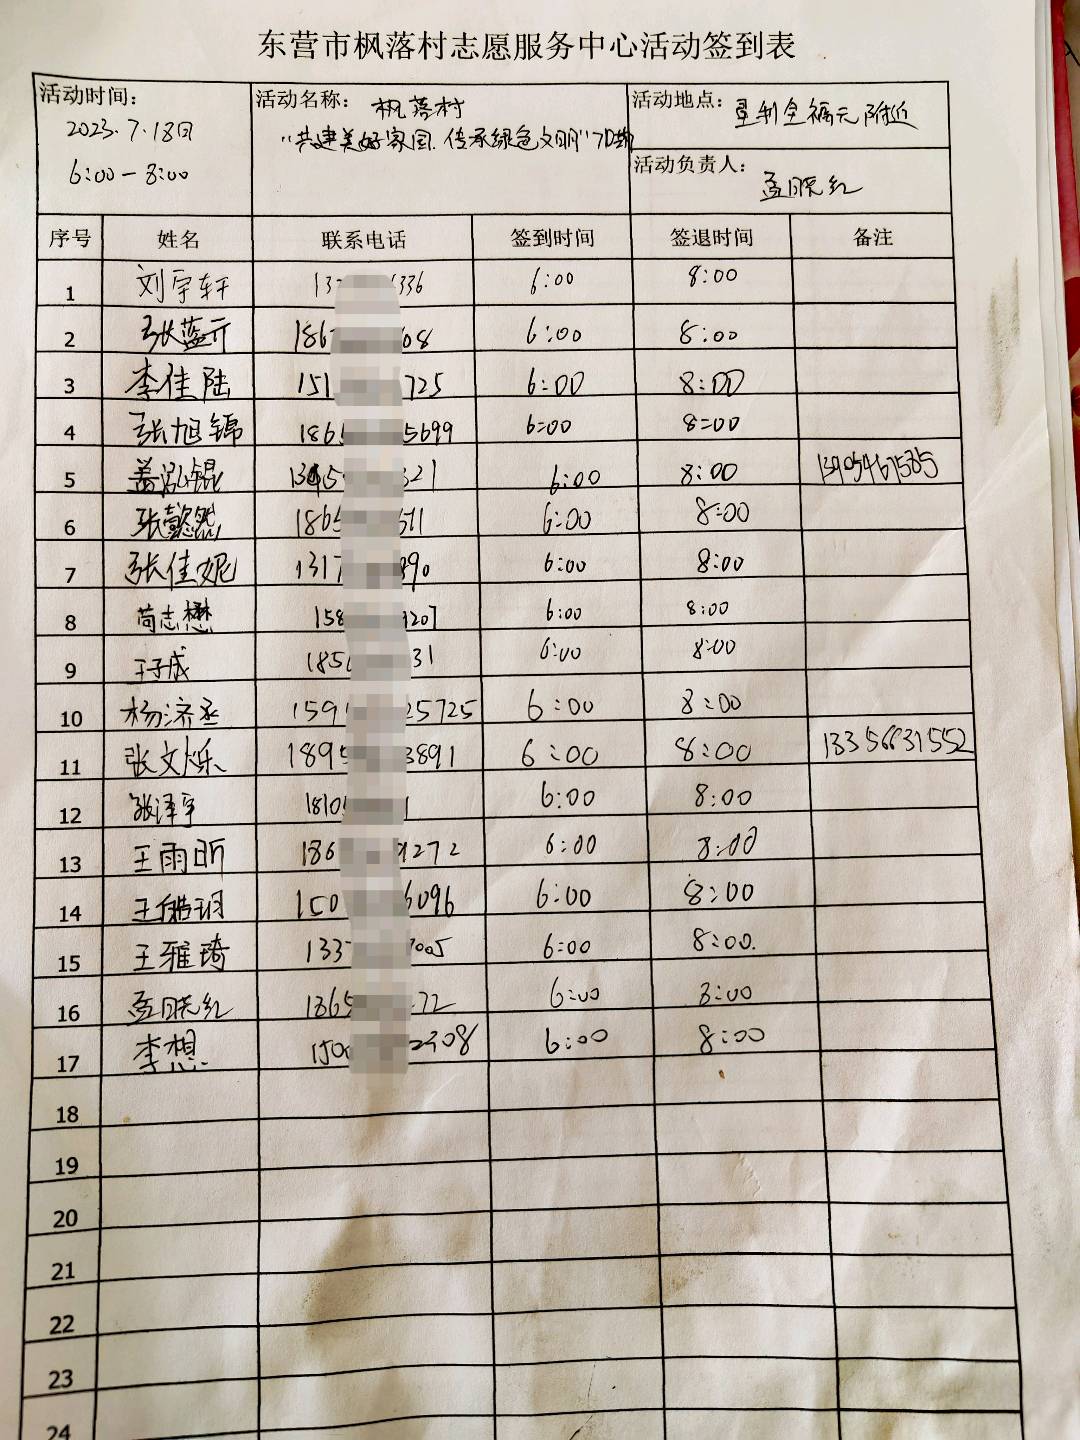 东营市枫落村志愿服务中心活动签到表
活动时间：
2023.7.18日
6:00-8:00
活动名称： 枫落村
"共建美好家园.传承绿色文明"活动
活动地点： 垦利全福元附近
活动负责人：
孟晓红
序号 姓名 联系电话 签到时间 签退时间 备注
1 刘宇轩 13 336 6:00 8:00
2 张蓝 186 08 6:00 8:00
3 李佳陆 151 725 6:00 8:00
4 张旭锦 186 5699 6:00 8:00
5 盖泓锟 321 6:00 8:00 13905461585
6 张懿然 1865 511 6:00 8:00
7 张佳妮 1317 890 6:00 8:00
8 苘志懋 158 9207 6:00 8:00
9 王子成 185 31 6:00 8:00
10 杨济丞 159 25725 6:00 8:00
11 张文烁 1895 3891 6:00 8:00 13356631552
12 张泽宇 1810 1 6:00 8:00
13 王雨昕 186 1272 6:00 8:00
14 王皓玥 150 6096 6:00 8:00
15 王雅琦 133 7005 6:00 8:00.
16 孟晓红 1865 72 6:00 8:00
17 李想 150 2308 6:00 8:00
18
19
20
21
22
23
24